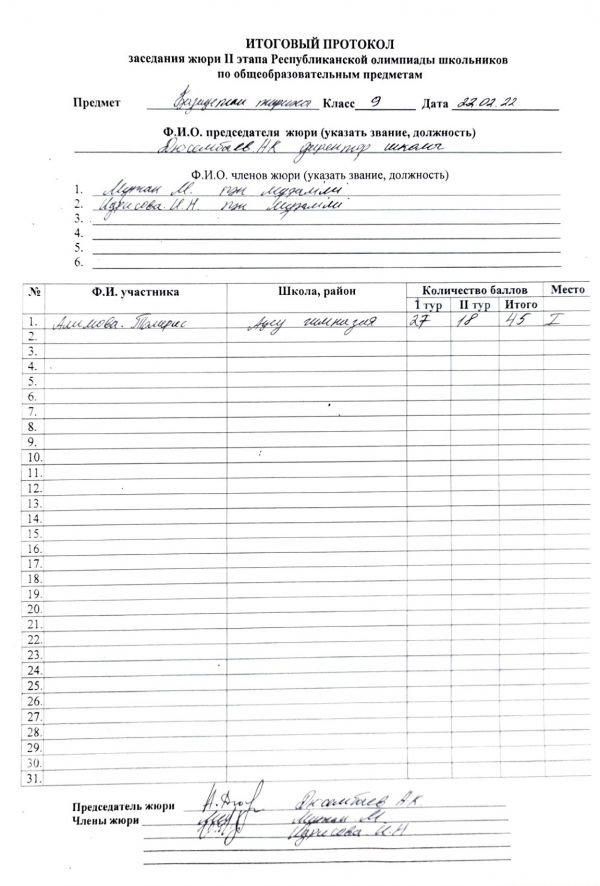 ИТОГОВЫЙ ПРОТОКОЛ
заседания жюри II этапа Республиканской олимпиады школьников
по общеобразовательным предметам
Предмет Класс 9 Дата 22.02.22
Ф.И.О. председателя жюри (указать звание, должность)
Дюсембаев А.К директор школы
Ф.И.О. членов жюри (указать звание, должность)
1. М. пән мұғалімі
2. Идрисова. И.Н. пән мұғалімі
3.
4.
5.
6.
№ Ф.И. участника Школа, район Количество баллов Место
1 тур II тур Итого
1. Алимова. Томирис Ақсу гимназия 27 18 45 I
2.
3.
4.
5.
6.
7.
8.
9.
10.
11.
12.
13.
14.
15.
16.
17.
18.
19.
20.
21.
22.
23.
24.
25.
26.
27.
28.
29.
30.
31.
Председатель жюри Дюсембаев А.К.
Члены жюри М.
Идрисова И.Н